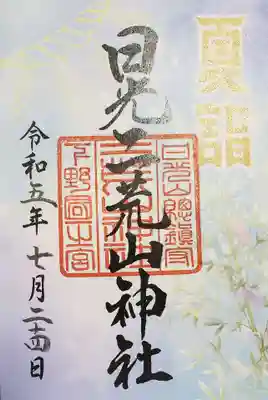 夏詣
日光山總鎮守
日光二荒山神社
令和五年七月二十四日